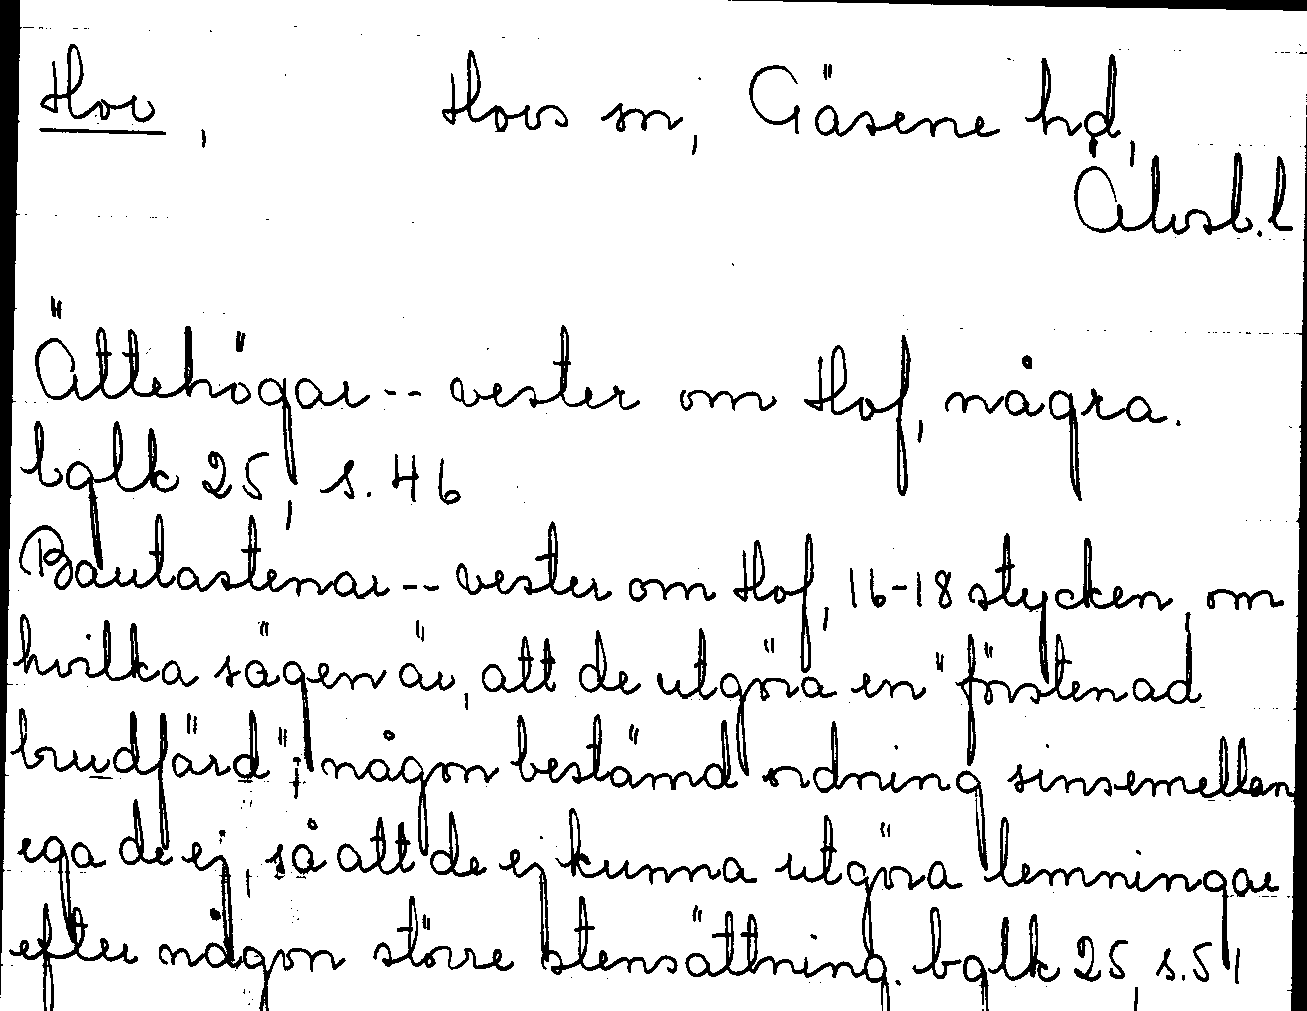 Hov, Hovs sn, Gäsene hd,
Älvsb. l
Ättehögar -- vester om Hof, några.
bglk 25, s. 46
Bautastenar -- vester om Hof, 16-18 stycken, om
hvilka sägen är, att de utgöra en "förstenad
brudfärd"; någon bestämd ordning sinsemellan
ega de ej, så att de ej kunna utgöra lemningar
efter någon större stensättning. bglk 25, s. 51